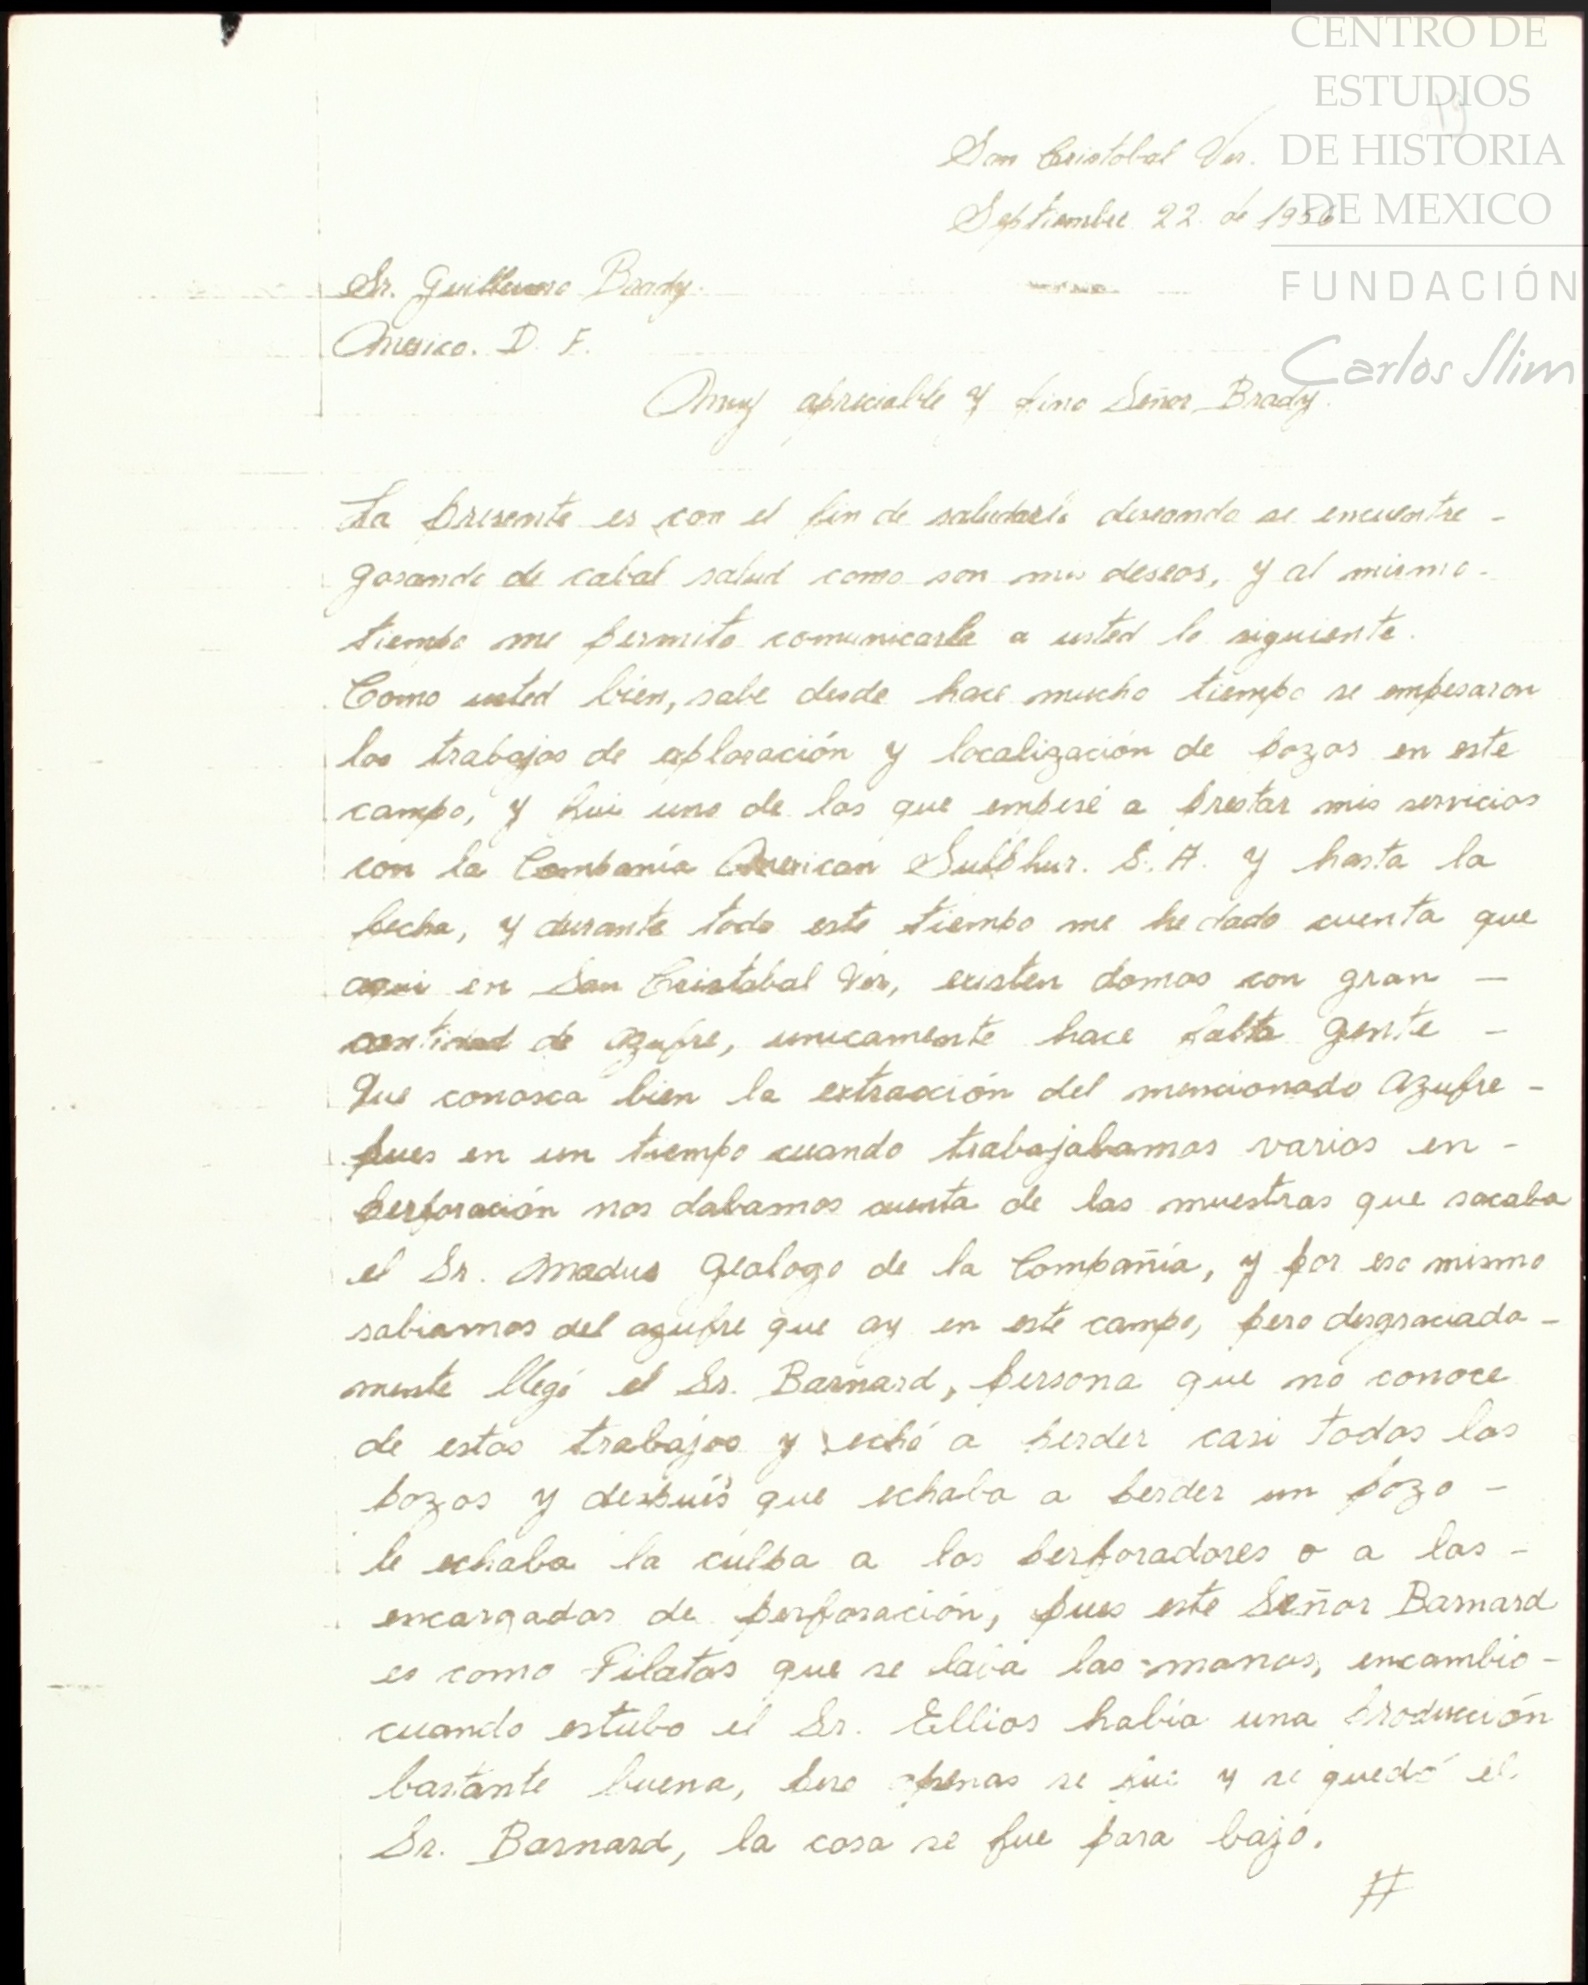 CENTRO DE
ESTUDIOS
DE HISTORIA
DE MEXICO
FUNDACIÓN
Carlos Slim
19
San Cristobal Ver.
Septiembre 22 de 1956.
Sr. Guillermo Brady.
Mexico. D. F.
Muy apreciable y fino Señor Brady.
La presente es con el fin de saludarle deseando se encuentre -
gosando de cabal salud como son mis deseos, y al mismo -
tiempo me permito comunicarle a usted lo siguiente.
Como usted bien, sabe desde hace mucho tiempo se empesaron
los trabajos de exploración y localización de pozos en este
campo, y fui uno de los que empesé a prestar mis servicios
con la Compania American Sulphur. S. A. y hasta la
fecha, y durante todo este tiempo me he dado cuenta que
aqui en San Cristobal Ver, existen domos con gran -
cantidad de azufre, unicamente hace falta gente -
Que conosca bien la extracción del mencionado azufre -
pues en un tiempo cuando trabajabamos varios en -
perforación nos dabamos cuenta de las muestras que sacaba
el Sr. Madus Geologo de la Compañía, y por eso mismo
sabiamos del azufre que ay en este campo, pero desgraciada -
mente llegó el Sr. Barnard, persona que no conoce
de estos trabajos y echó a perder casi todos los
pozos y después que echaba a perder un pozo -
le echaba la culpa a los perforadores o a los -
encargados de perforación, pues este Señor Barnard
es como Pilatos que se laba las manos, encambio -
cuando estubo el Sr. Ellios había una producción
bastante buena, pero apenas se fue y se quedó el
Sr. Barnard, la cosa se fue para bajo.
#